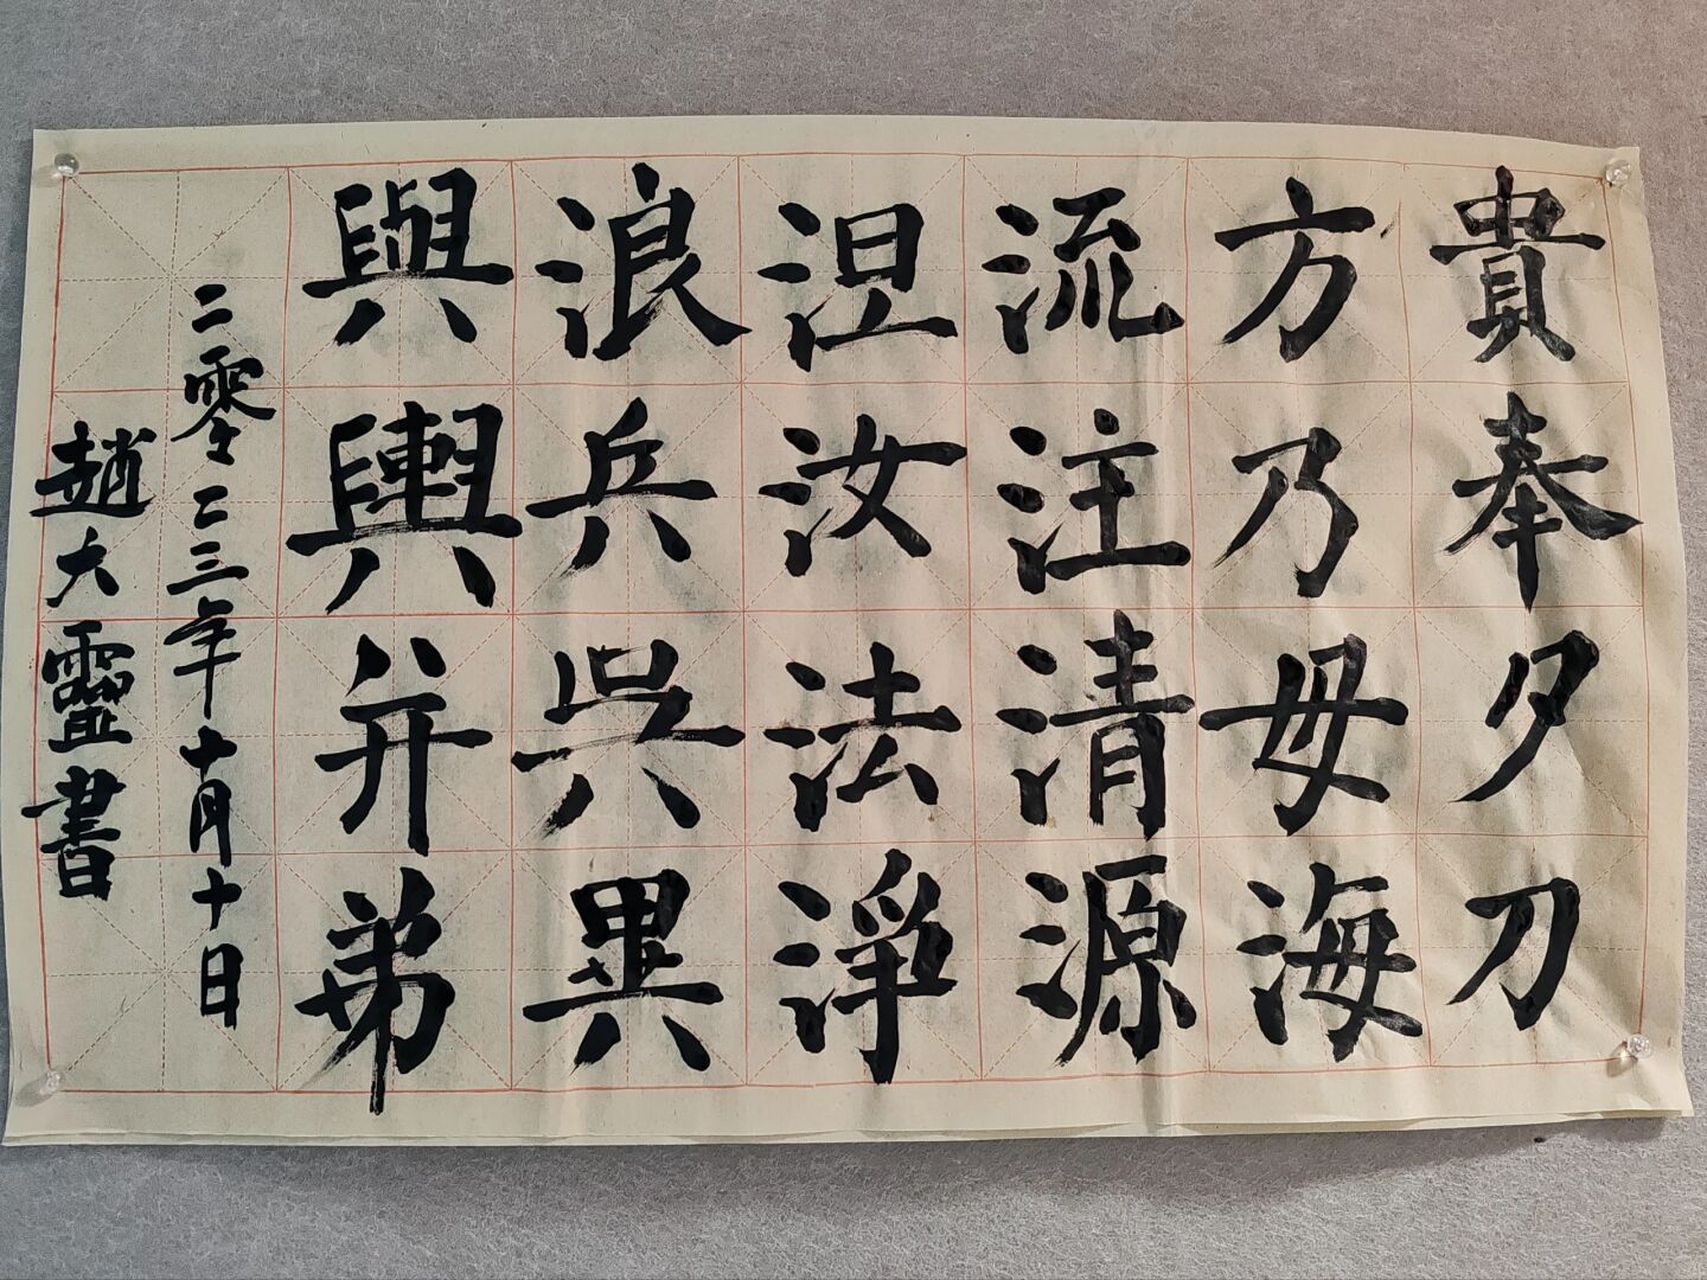 貴奉夕刀
方乃毋海
流注清源
涅汝法淨
浪兵吳異
與輿并弟
二零二三年十月十日
趙大靈書